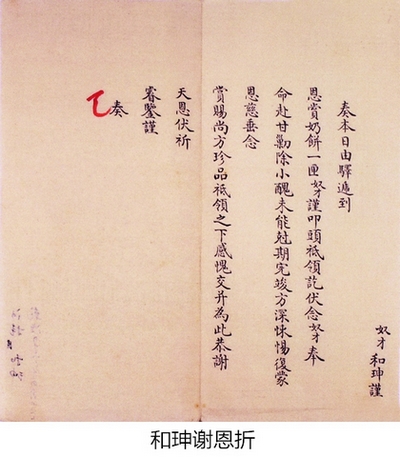 奴才和珅謹
奏本日由驛遞到
恩賞奶餅一匣奴才謹叩頭祗領訖伏念奴才奉
命赴甘勦除小醜未能尅期完竣方深悚惕復蒙
恩慈垂念
賞賜尚方珍品祗領之下感愧交并為此恭謝
天恩伏祈
睿鑒謹
奏
和珅谢恩折